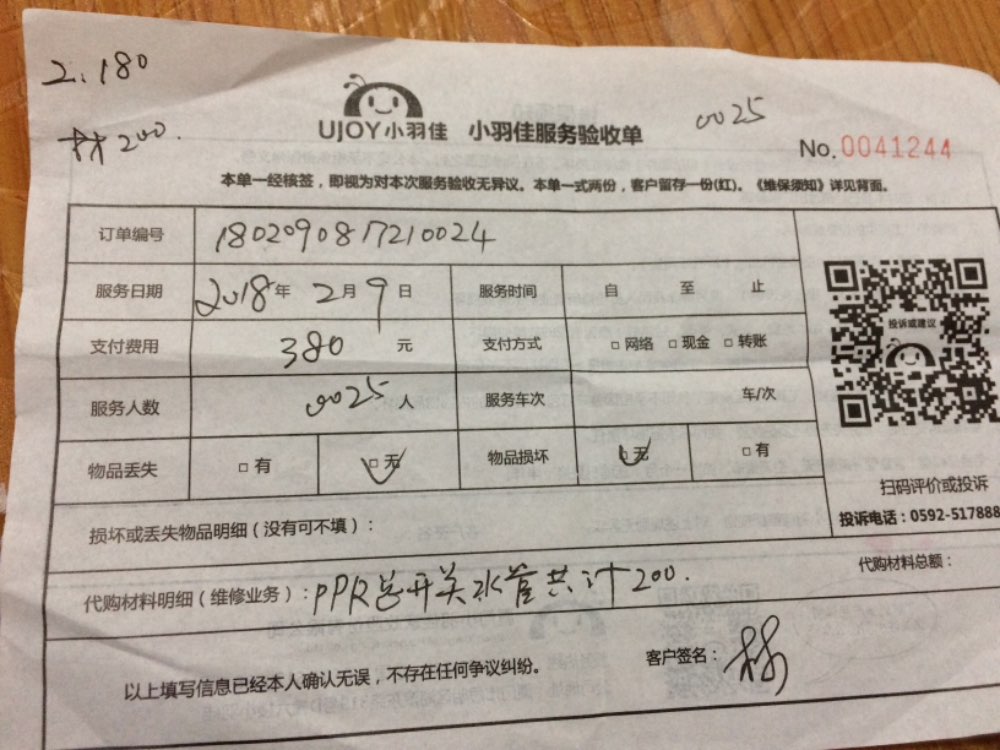 2.180
材200.
UJOY小羽佳 小羽佳服务验收单
0025
No.0041244
本单一经核签，即视为对本次服务验收无异议。本单一式两份，客户留存一份(红)。《维保须知》详见背面。
订单编号 180209087210024
服务日期 2018年 2月 9日 服务时间 自 至 止
支付费用 380 元 支付方式 □网络 □现金 □转账
服务人数 0025人 服务车次 车/次
物品丢失 □有 □无 物品损坏 □无 □有
投诉或建议
扫码评价或投诉
投诉电话：0592-517888
损坏或丢失物品明细（没有可不填）：
代购材料明细（维修业务）：PPR总开关水管共计200.
代购材料总额：
以上填写信息已经本人确认无误，不存在任何争议纠纷。
客户签名：